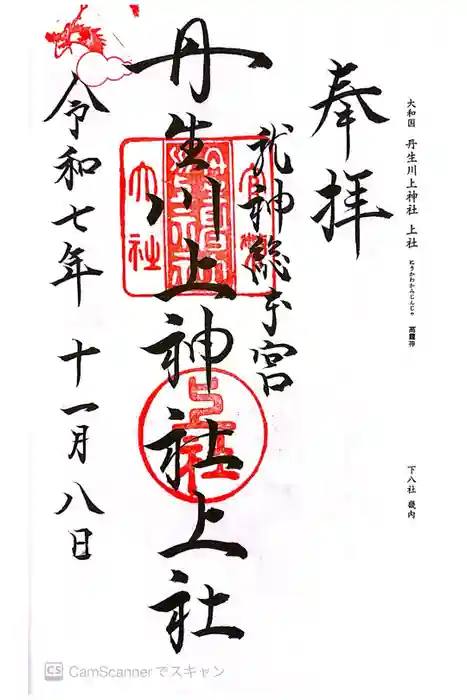 大和国 丹生川上神社 上社
にうかわかみじんじゃ 高龗神
下八社 畿内
奉拝
龍神総本宮
丹生川上神社上社
大社
上社
令和七年 十一月八日
CS CamScannerでスキャン